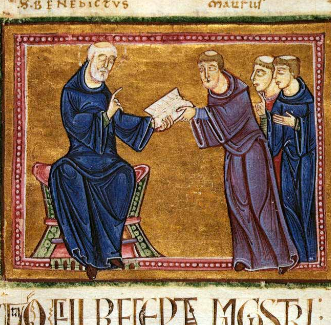 S. BENEDICTVS MAURUS
O FILI PRECEPTA MGSTRI